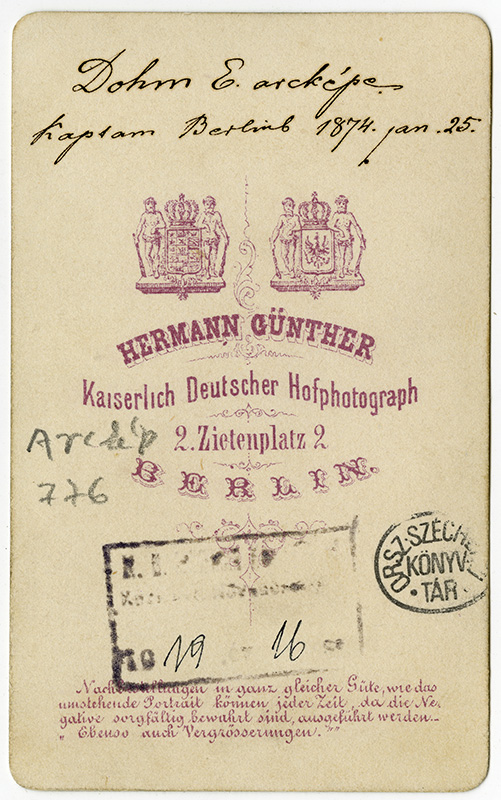 Dohm E. arcképe
Kaptam Berlinb 1874. jan. 25.
HERMANN GÜNTHER
Kaiserlich Deutscher Hofphotograph
2. Zietenplatz 2
BERLIN.
Arckép
776
ORSZ. SZÉCH.
KÖNYV-
TÁR
19 16
Nachbestellungen in ganz gleicher Güte, wie das
umstehende Portrait können jeder Zeit, da die Ne-
gative sorgfältig bewahrt sind, ausgeführt werden.
„Ebenso auch Vergrösserungen."